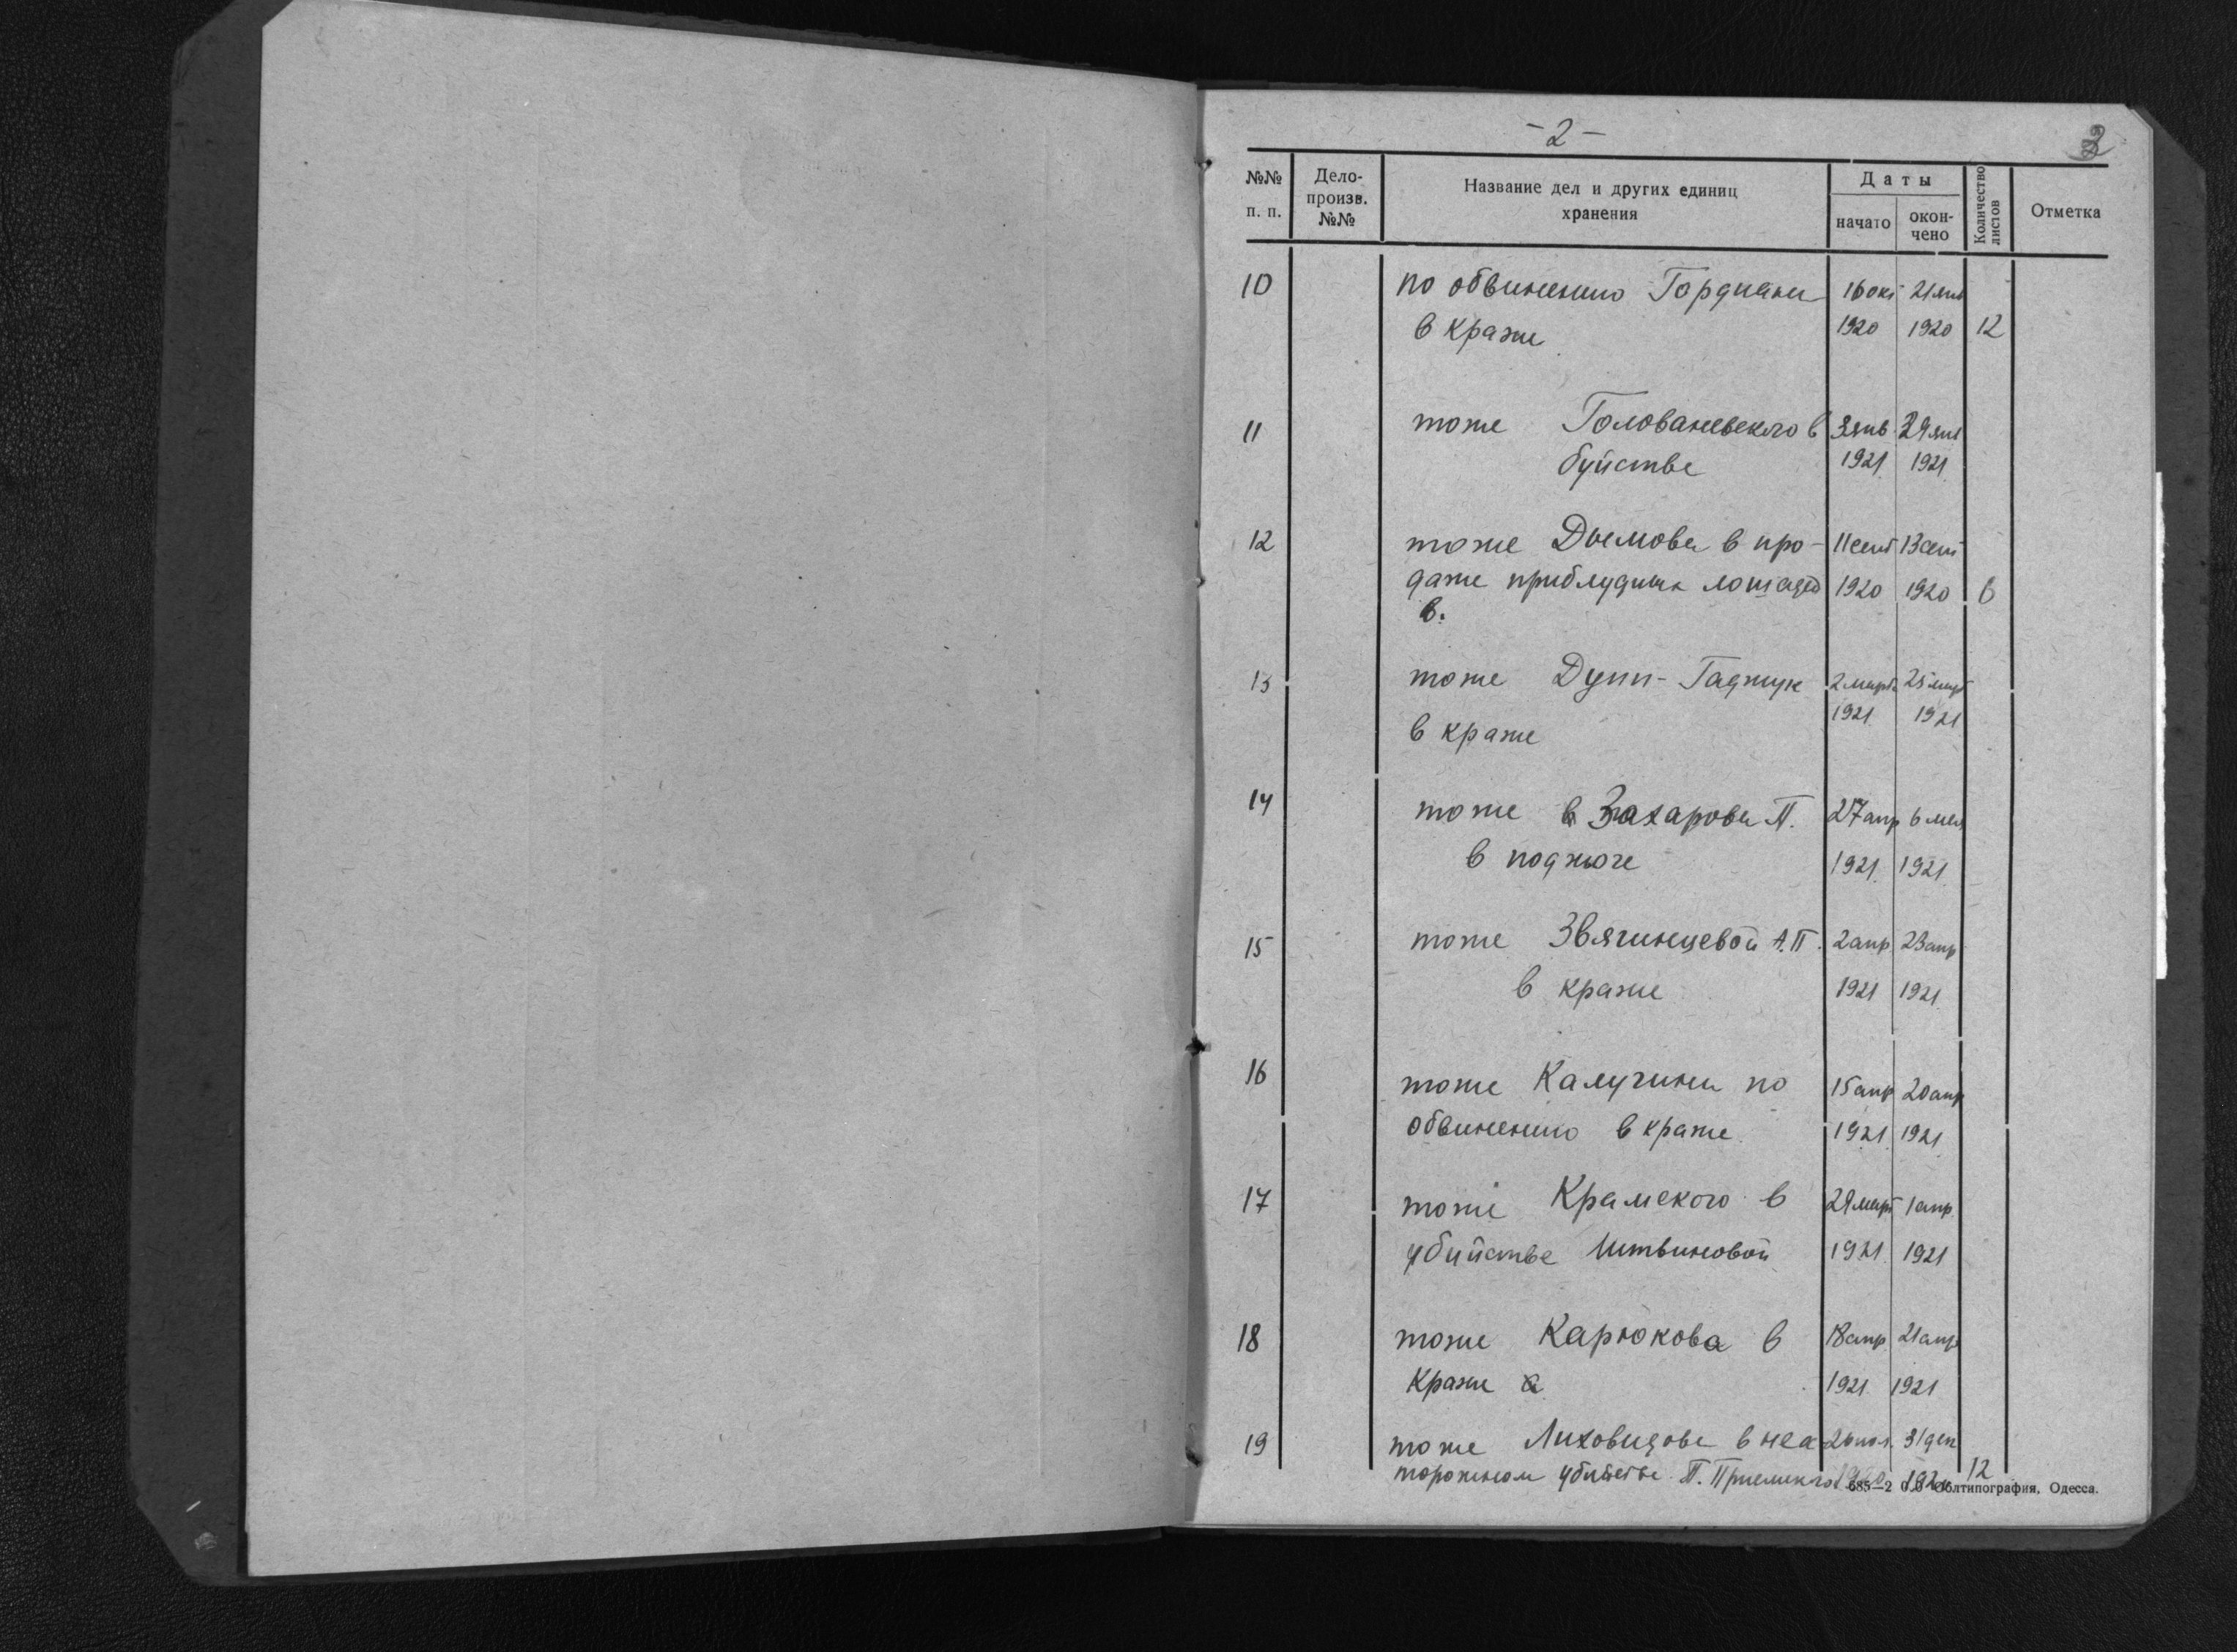 - 2 -
2
№№ п. п.
Дело-произв. №№
Название дел и других единиц хранения
Даты
начато
окон-чено
Количество листов
Отметка
10 по обвинению Гордиана 16 окт
в краже 1920 1920 12
11 тоже Голованевского в 3 янв 29 янв
буйстве 1921 1921
12 тоже Дымова в про- 11 сент 13 сент
даже приблудных лошадей 1920 1920 6
в.
13 тоже Дупп-Гаджук 2 марта 25 март
1921 1921
в краже
14 тоже Захарова П. 27 апр 6 мая
в поджоге 1921 1921
15 тоже Звягинцевой А.П. 2 апр 23 апр
в краже 1921 1921
16 тоже Калугина по 15 апр 20 апр
обвинению в краже 1921 1921
17 тоже Крамского в 29 март 1 апр.
убийстве Литвиновой 1921 1921
18 тоже Карюкова в 18 апр. 21 апр
краже 1921 1921
19 тоже Лиховидова в нео 31 дек
торожном убийстве П. 1920 1920 12
685—2 Облтипография, Одесса.